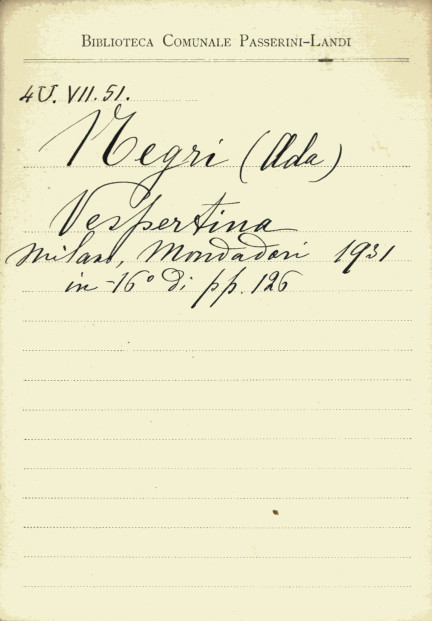 Biblioteca Comunale Passerini-Landi
4U. VII. 51.
Negri (Ada)
Vespertina
Milano, Mondadori 1931
in-16° di pp. 126